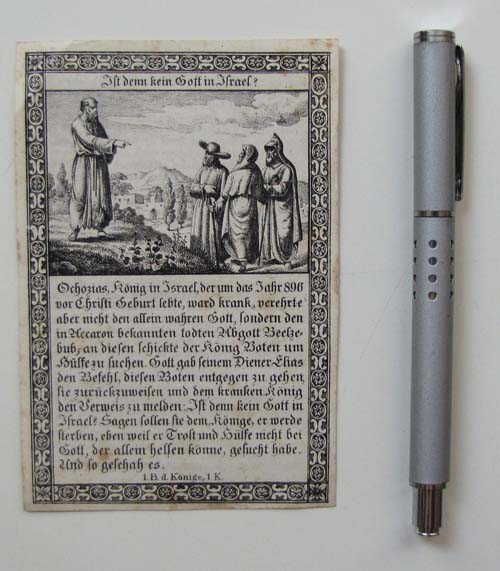 Ist denn kein Gott in Israel?
Ochozias, König in Israel, der um das Jahr 896
vor Christi Geburt lebte, ward krank, verehrte
aber nicht den allein wahren Gott, sondern den
in Accaron bekannten todten Abgott Beelze-
bub, an diesen schickte der König Boten um
Hülfe zu suchen. Gott gab seinem Diener Elias
den Befehl, diesen Boten entgegen zu gehen,
sie zurückzuweisen und dem kranken König
den Verweis zu melden: Ist denn kein Gott in
Israel? Sagen sollen sie dem Könige, er werde
sterben, eben weil er Trost und Hülfe nicht bei
Gott, der allein helfen könne, gesucht habe.
Und so geschah es.
1. B. d. Könige, 1 K.